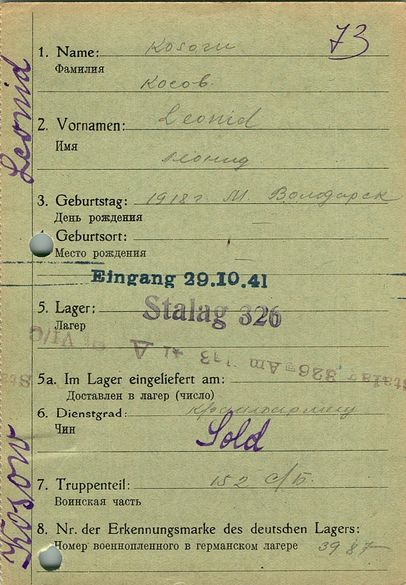 73
1. Name:
Фамилия
Косов
2. Vornamen: Leonid
Имя
Леонид
3. Geburtstag: 1918 г. М. Володарск
День рождения
4. Geburtsort:
Место рождения
Eingang 29.10.41
5. Lager: Stalag 326
Лагерь
Stalag 326 VI/C
5a. Im Lager eingeliefert am:
Доставлен в лагер (число)
6. Dienstgrad:
Чин
Sold
7. Truppenteil: 152 с/Б.
Воинская часть
8. Nr. der Erkennungsmarke des deutschen Lagers:
Номер военнопленного в германском лагере 3987
Kosow Leonid